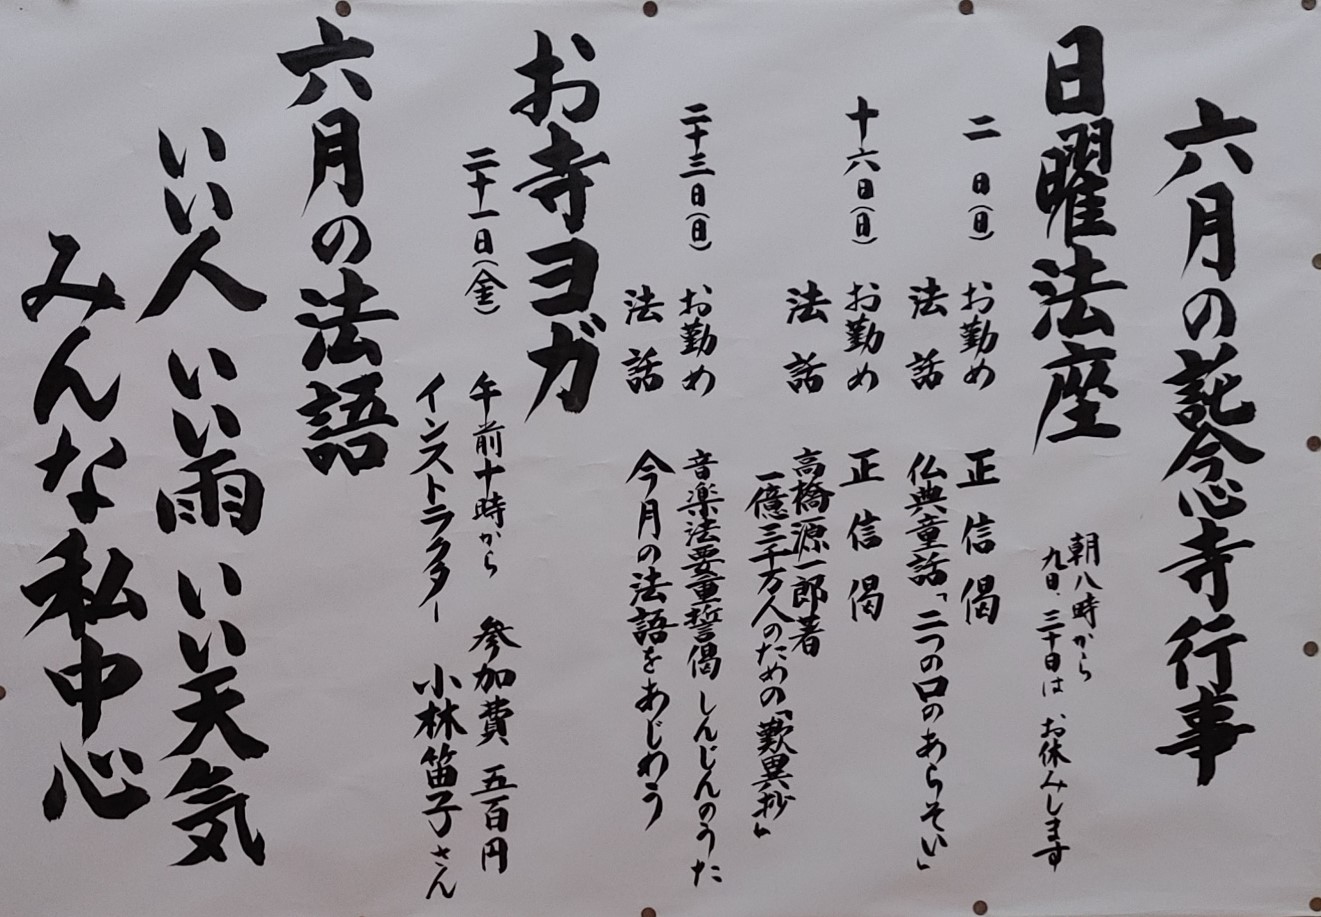 六月の託念寺行事
日曜法座
朝八時から
九日、三十日は お休みします
二 日(日) お勤め 正信偈
法話 仏典童話「二つの口のあらそい」
十六日(日) お勤め 正信偈
法話 高橋源一郎著
一億三千万人のための『歎異抄』
二十三日(日) お勤め 音楽法要重誓偈 しんじんのうた
法話 今月の法語をあじわう
お寺ヨガ
二十一日(金) 午前十時から 参加費 五百円
インストラクター 小林笛子さん
六月の法語
いい人 いい雨 いい天気
みんな私中心